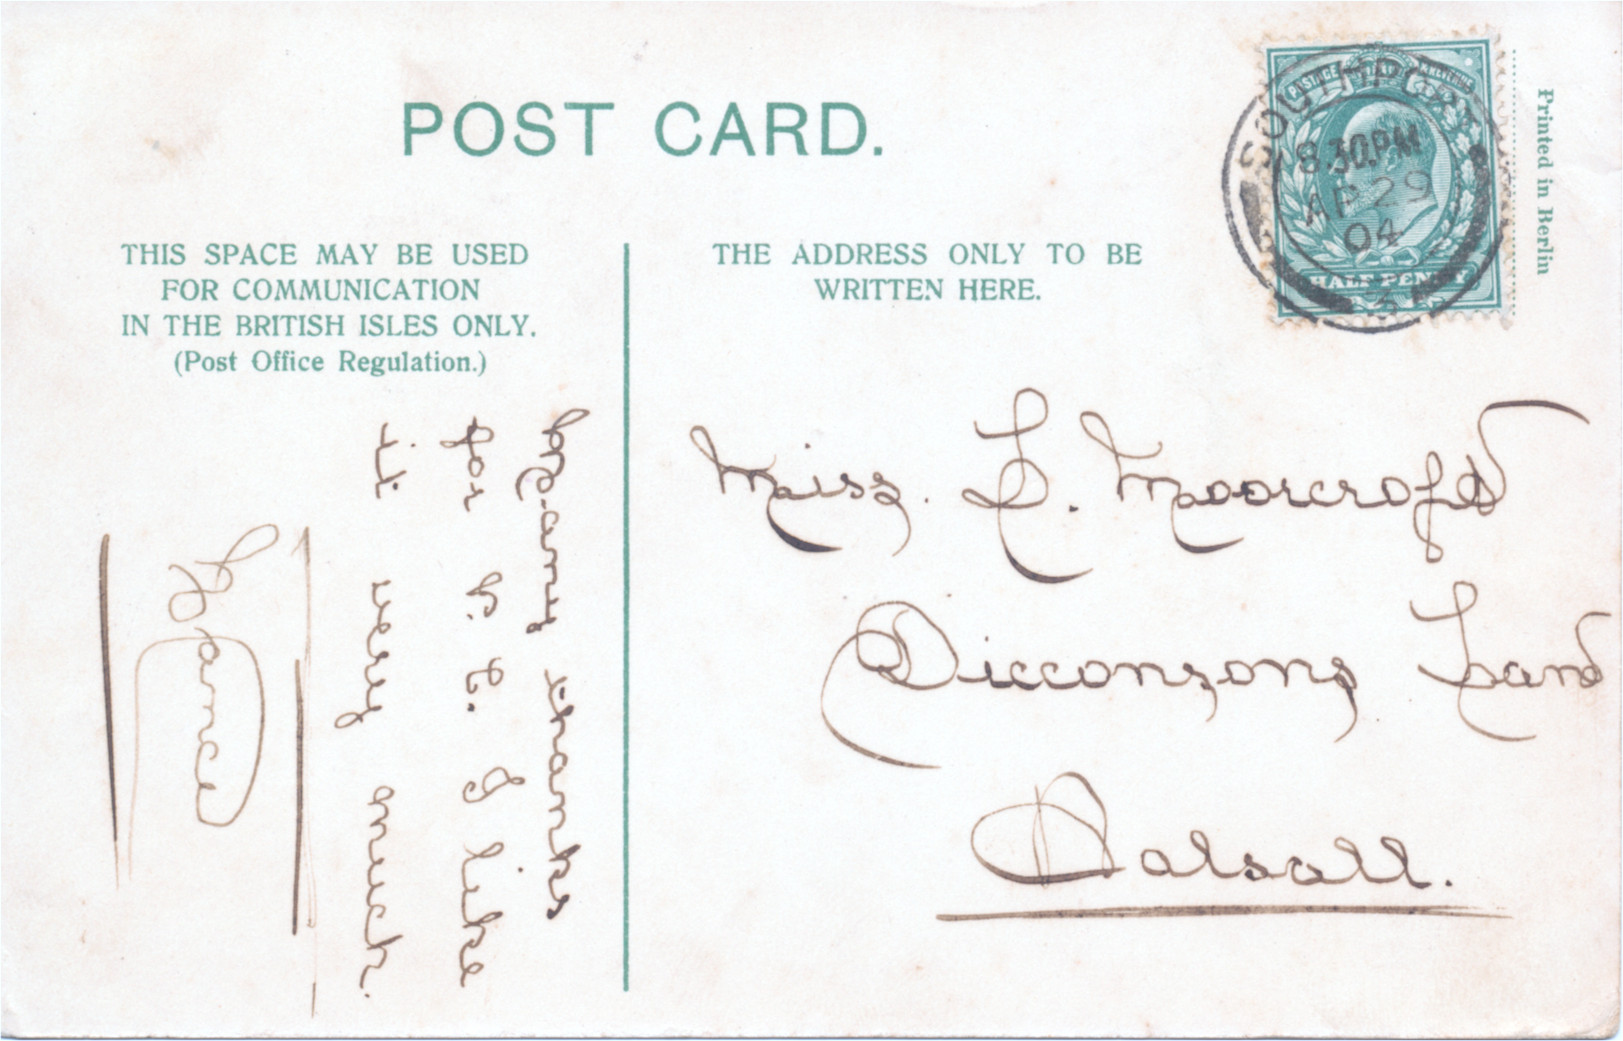 POST CARD.
THIS SPACE MAY BE USED
FOR COMMUNICATION
IN THE BRITISH ISLES ONLY.
(Post Office Regulation.)
Many thanks
for P. C. I like
it very much.
Nance
THE ADDRESS ONLY TO BE
WRITTEN HERE.
POSTAGE REVENUE
HALF PENNY
SOUTHPORT
8.30PM
AP 29
04
Printed in Berlin
Miss. L. Moorcroft
Dicconsons Lane
Halsall.